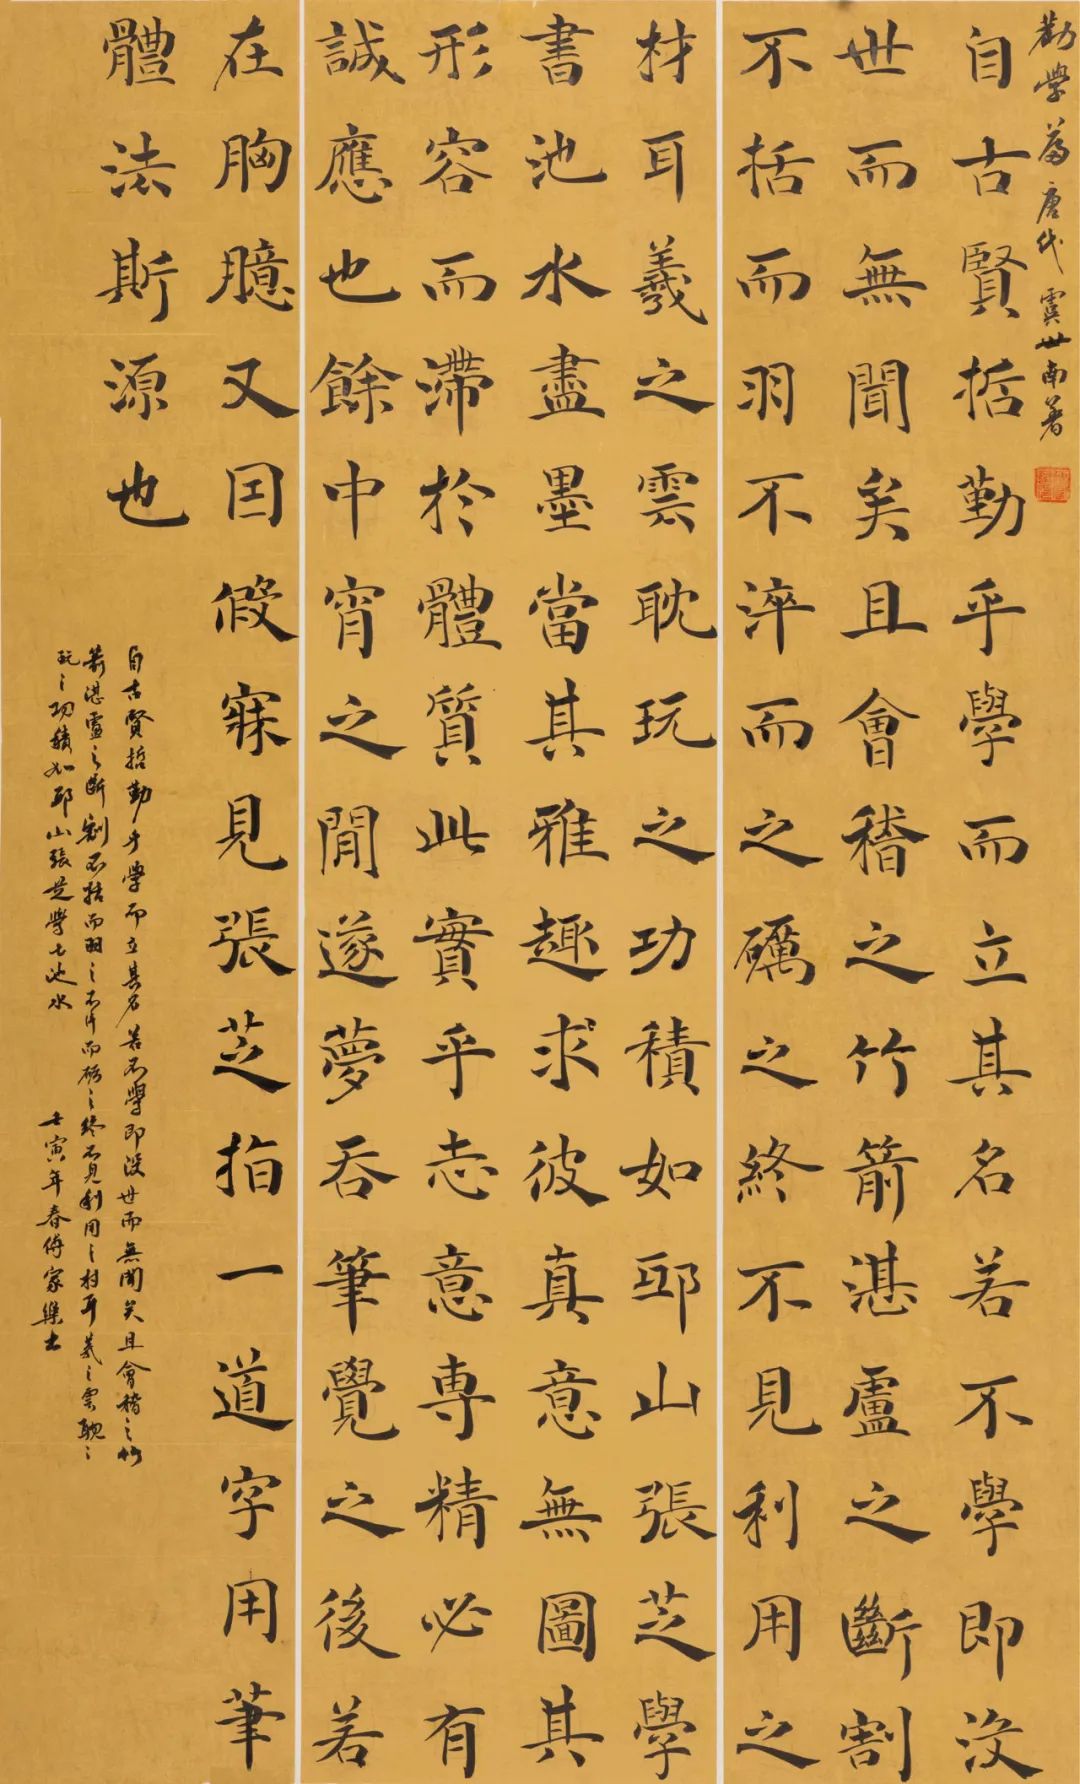 勸學篇 唐代 虞世南著
自古賢哲勤乎學而立其名若不學即沒
世而無聞矣且會稽之竹箭湛盧之斷割
不括而羽不淬而之礪之終不見利用之
材耳羲之雲耽玩之功積如邱山張芝學
書池水盡墨當其雅趣求彼真意無圖其
形容而滯於體質此實乎志意專精必有
誠應也餘中宵之間遂夢吞筆覺之後若
在胸臆又因假寐見張芝指一道字用筆
體法斯源也
自古賢哲勤乎學而立其名若不學即沒世而無聞矣且會稽之竹
箭湛盧之斷割不括而羽之不淬而礪之終不見利用之材耳羲之雲耽之
玩之功積如邱山張芝學書池水
壬寅年春傅家樂書